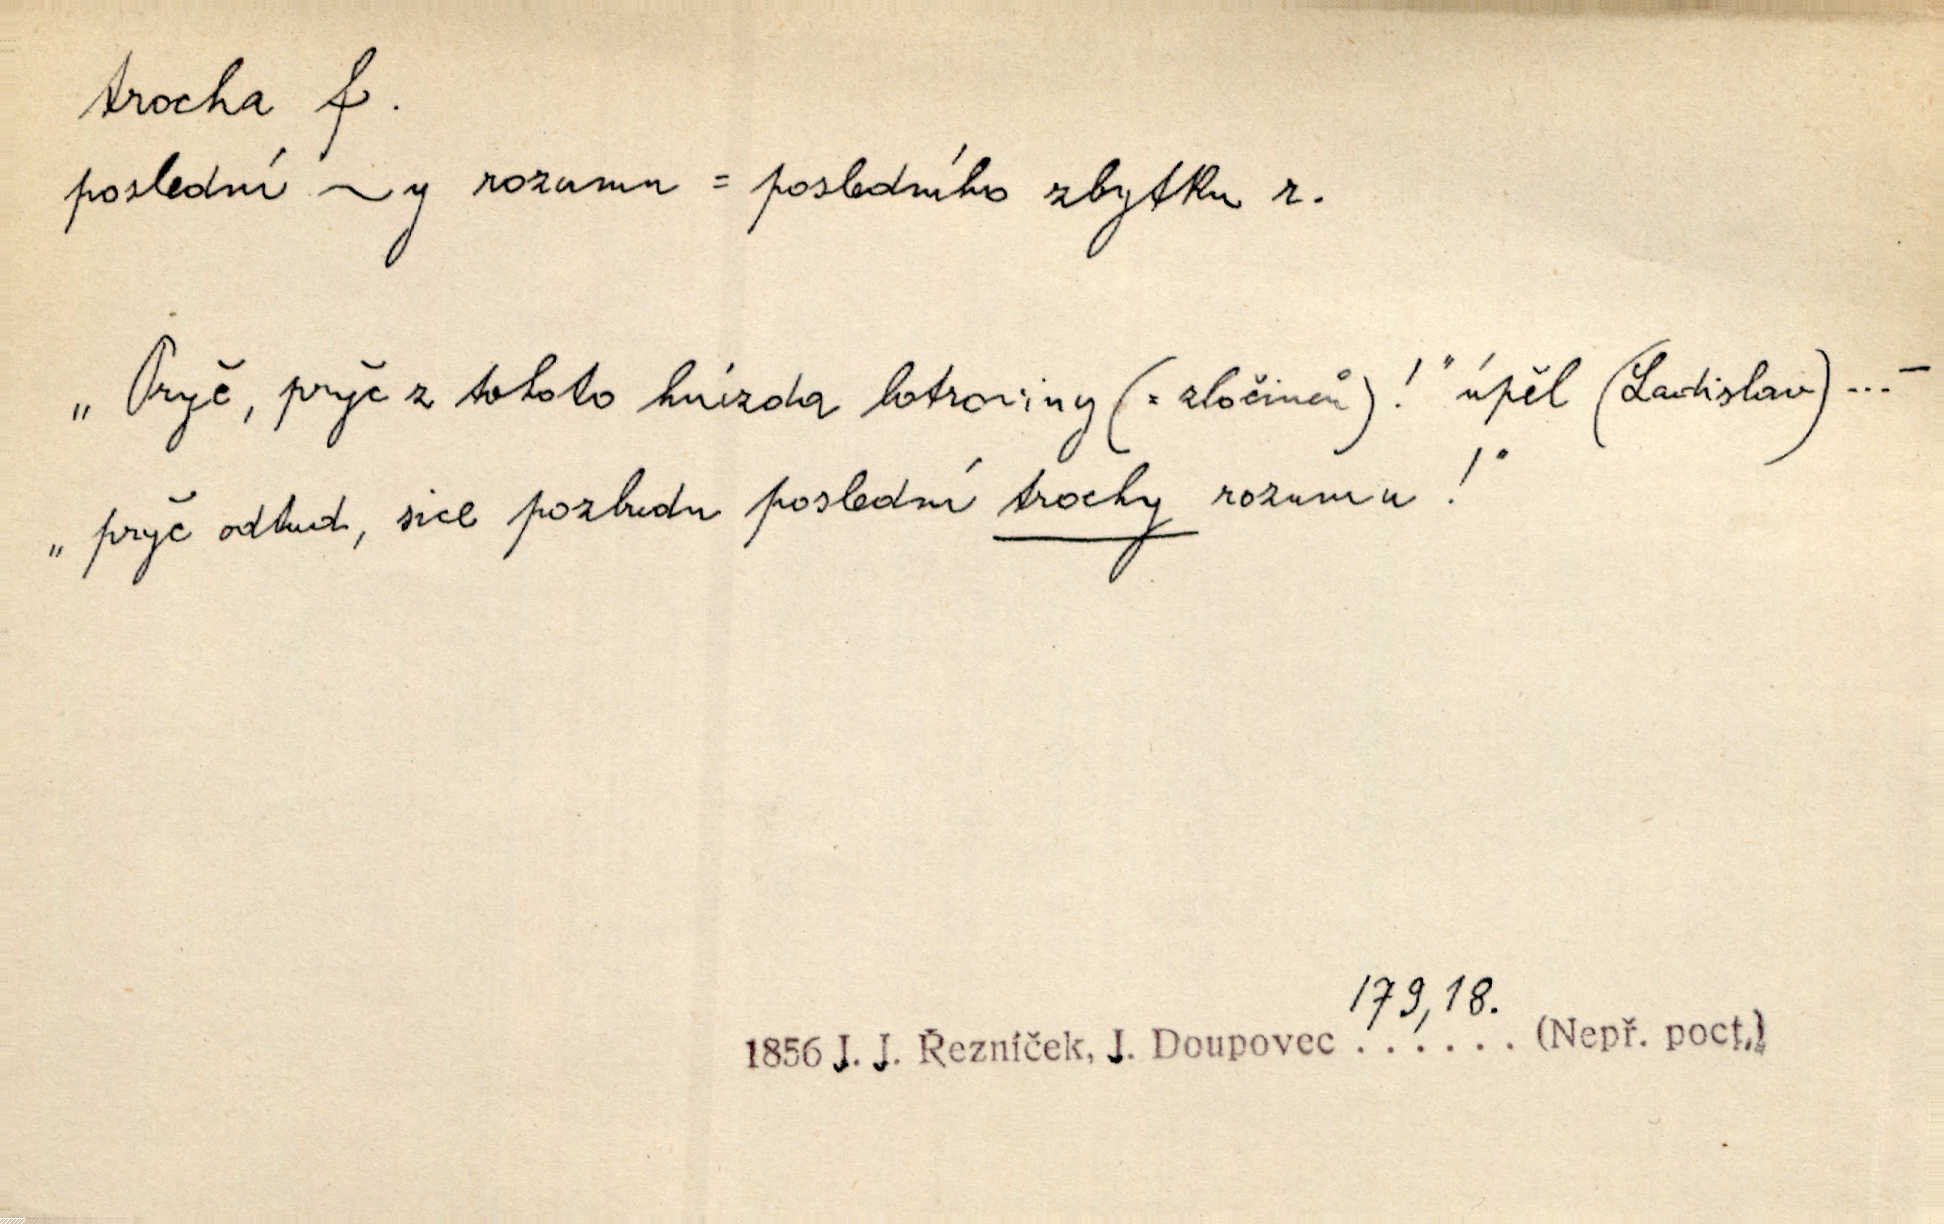 trocha f.
poslední ~y rozumu = posledního zbytku r.
„Pryč, pryč z tohoto hnízda lotroviny (= zločinců)!" úpěl (Ladislav) ... –
„pryč odtud, sice pozbudu poslední trochy rozumu!"
179,18.
1856 J. J. Řezníček, J. Doupovec . . . . . . (Nepř. poct.)